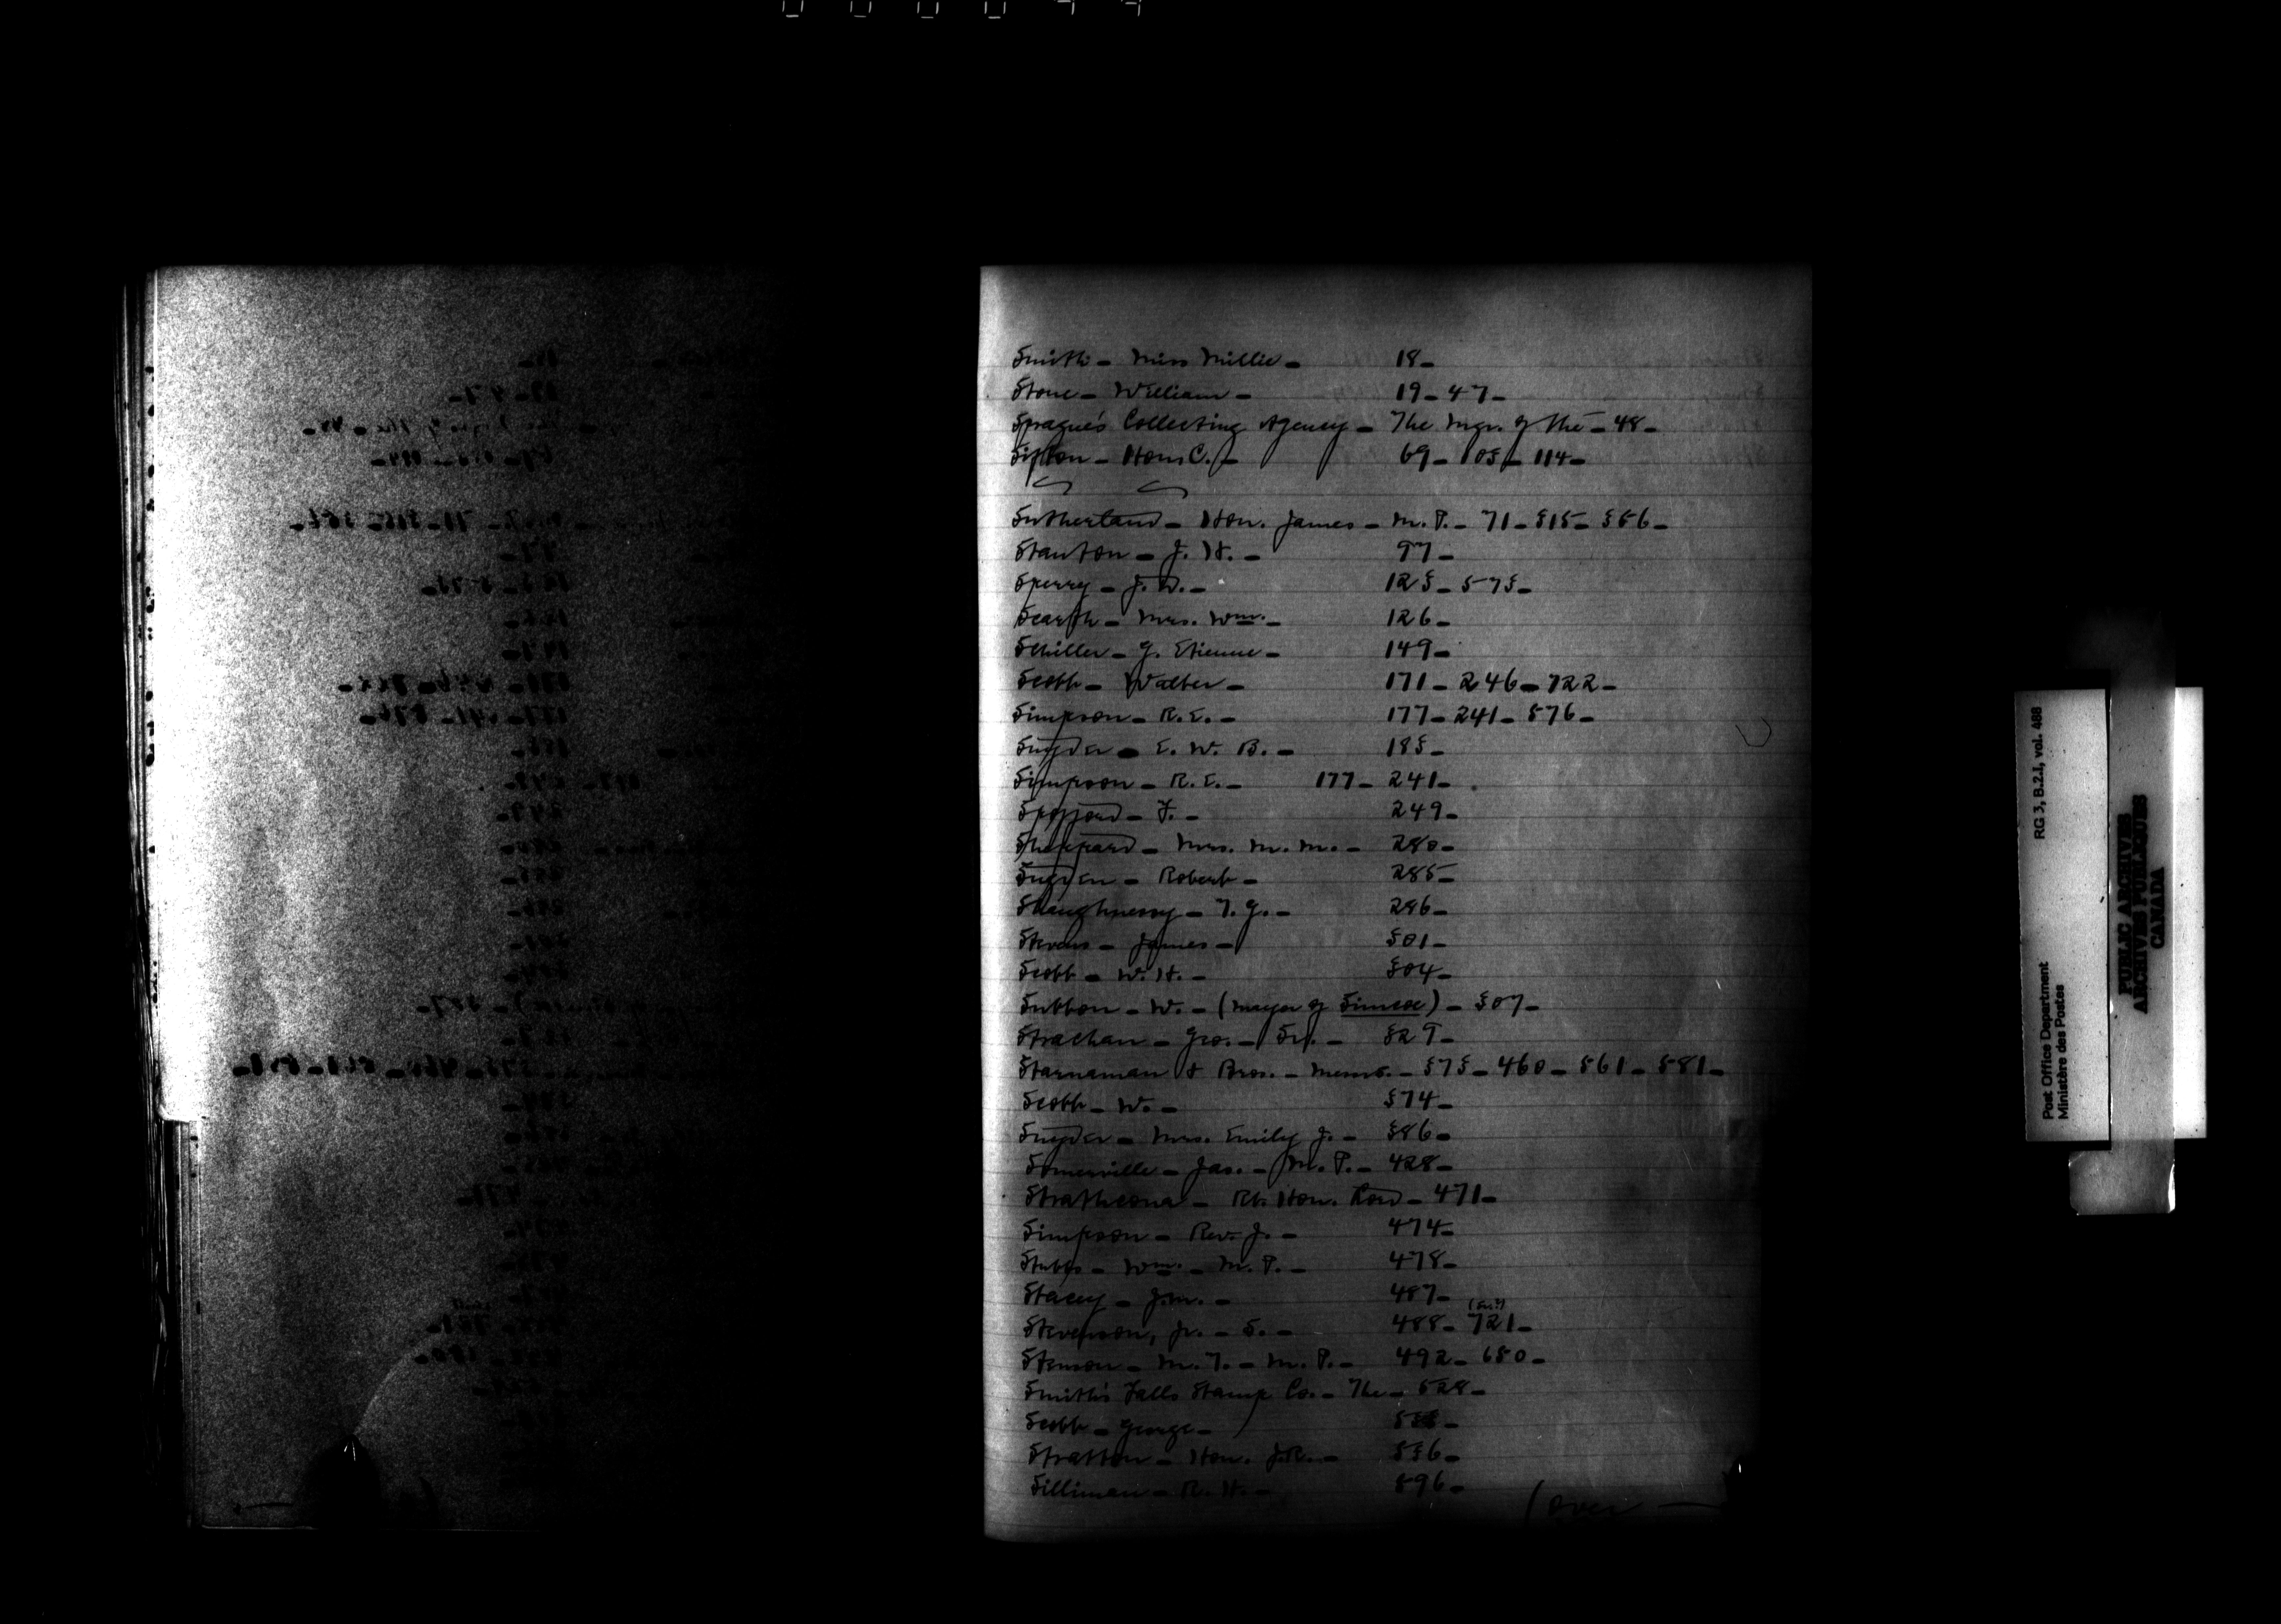 Smith - Miss Millie - 18 -
Stone - William - 19 - 47 -
Sprague's Collecting Agency - The Mgr. of the - 48 -
Sifton - Hon. C. - 69 - 105 - 114 -
Sutherland - Hon. James - M. P. - 71 - 315 - 356 -
Stanton - J. H. - 97 -
Sperry - J. D. - 123 - 573 -
Scarth - Mrs. Wm. - 126 -
Schiller - G. Etienne - 149 -
Scott - Walter - 171 - 246 - 722 -
Simpson - R. E. - 177 - 241 - 576 -
Snyder - E. W. B. - 183 -
Simpson - R. E. - 177 - 241 -
Spofford - F. - 249 -
Sheppard - Mrs. M. M. - 280 -
Snyder - Robert - 285 -
Shaughnessy - T. G. - 286 -
Stevens - James - 301 -
Scott - W. H. - 304 -
Sutton - W. - (Mayor of Simcoe) - 307 -
Strachan - Geo. - Sr. - 329 -
Starnaman & Bros. - Messrs. - 373 - 460 - 561 - 581 -
Scott - W. - 374 -
Snyder - Mrs. Emily J. - 386 -
Somerville - Jas. - M. P. - 428 -
Strathcona - Rt. Hon. Lord - 471 -
Simpson - Rev. J. - 474 -
Stubbs - Wm. - M. P. - 478 -
Stacey - J. M. - 487 -
Stevenson, Jr. - S. - 488 - 721 -
Stenson - M. T. - M. P. - 492 - 680 -
Smith's Falls Stamp Co. - The - 528 -
Scott - George -
Stratton - Hon. J. R. - 556 -
Silliman - R. H. - 596 -
(over -
RG 3, B.2.I, vol. 488
Post Office Department
Ministère des Postes
PUBLIC ARCHIVES
ARCHIVES PUBLIQUES
CANADA